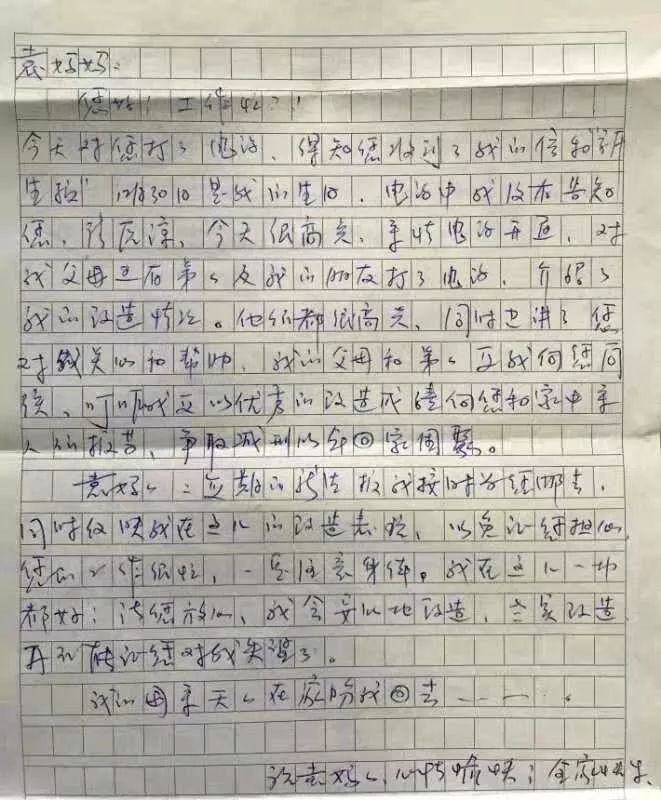 袁妈妈:
您好！工作忙？！
今天对您打了电话、得知您收到了我的信和新
生报 12月30日是我的生日、电话中我没有告知
您、请原谅、今天很高兴、亲情电话开通、对
我父母还有弟弟及我的朋友打了电话、介绍了
我的改造情况。他们都很高兴、同时也讲了您
对我关心和帮助、我的父母和弟弟要我向您问
候、叮嘱我要以优秀的改造成绩向您和家中亲
人们报答、争取减刑以早回家团聚。
袁妈妈: 三五期的新生报我按时为您寄去、
同时反映我在这儿的改造表现、以免让您担心、
您的工作很忙、一定注意身体。我在这儿一切
都好；请您放心、我会安心地改造、踏实改造
再不让您对我失望了。
我的母亲天天在盼我回去
祝袁妈妈 心情愉快；全家